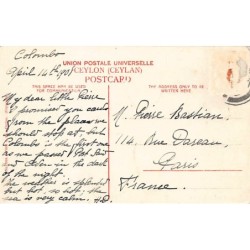 Colombo
April 14th 1901
UNION POSTALE UNIVERSELLE
CEYLON (CEYLAN)
POSTCARD
THIS SPACE MAY BE USED
FOR COMMUNICATION
THE ADDRESS ONLY TO BE
WRITTEN HERE
My dear little Pierre
I promised you cards
from the places we
should stop at, but
Colombo is the first one
as we passed Port Said
and Aden in the dark
of the night.
The weather is splendid
but hot, so hot, the
sea is very calm.
M. Pierre Bastian.
114. Rue Dareau,
Paris
France.